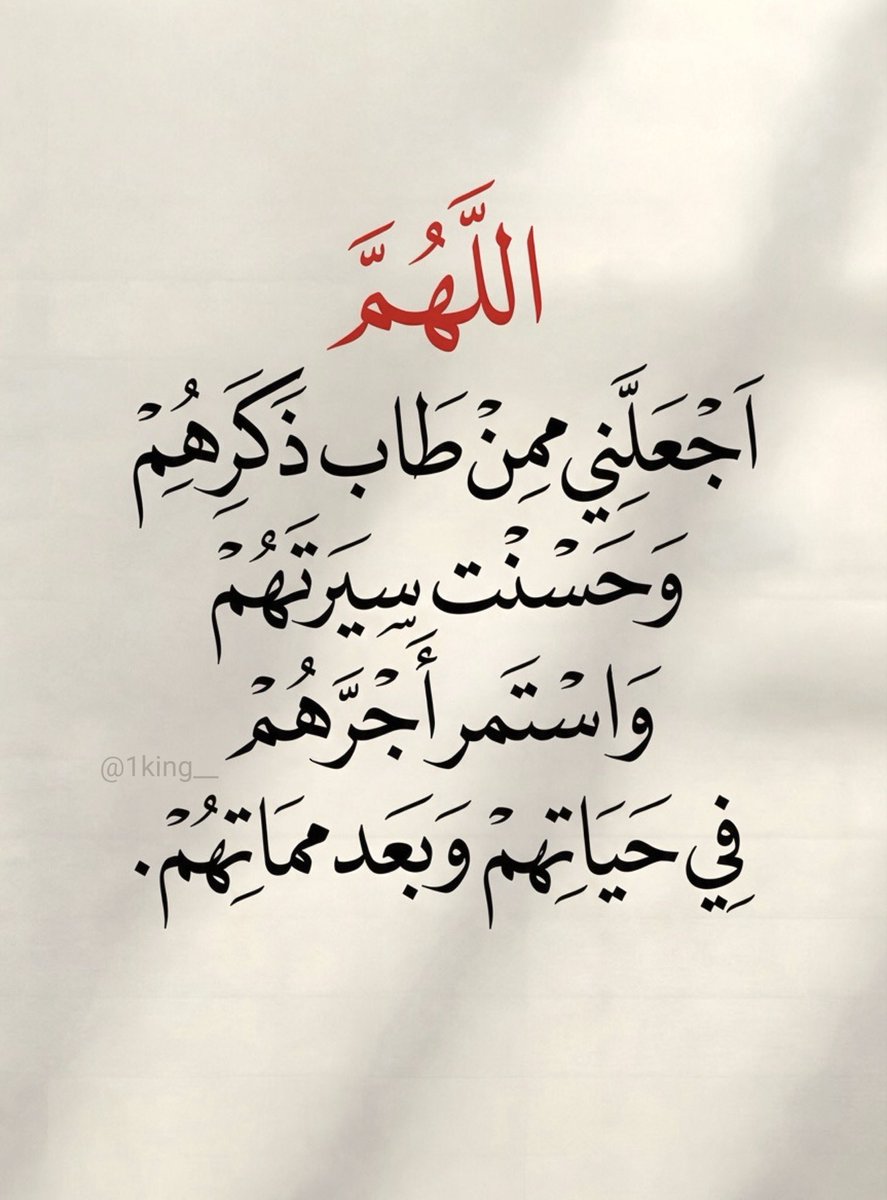 اللَّهُمَّ
اَجْعَلَّنِي مِمِنْ طَاب ذَكَرِهِمْ
وَحَسْنْت سِيَرتَهُمْ
وَاسْتَمر أَجْرَّهُمْ
@1king__
فِي حَيَاتِهمْ وَبَعَد ممَاتِهُمْ.